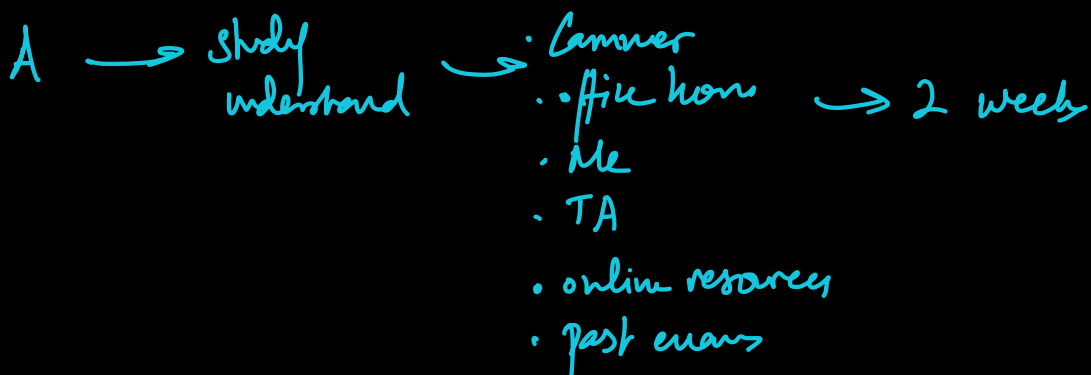 A → study understand → · Cammer
· office hours → 2 weeks
· Me
· TA
· online resources
· past exams